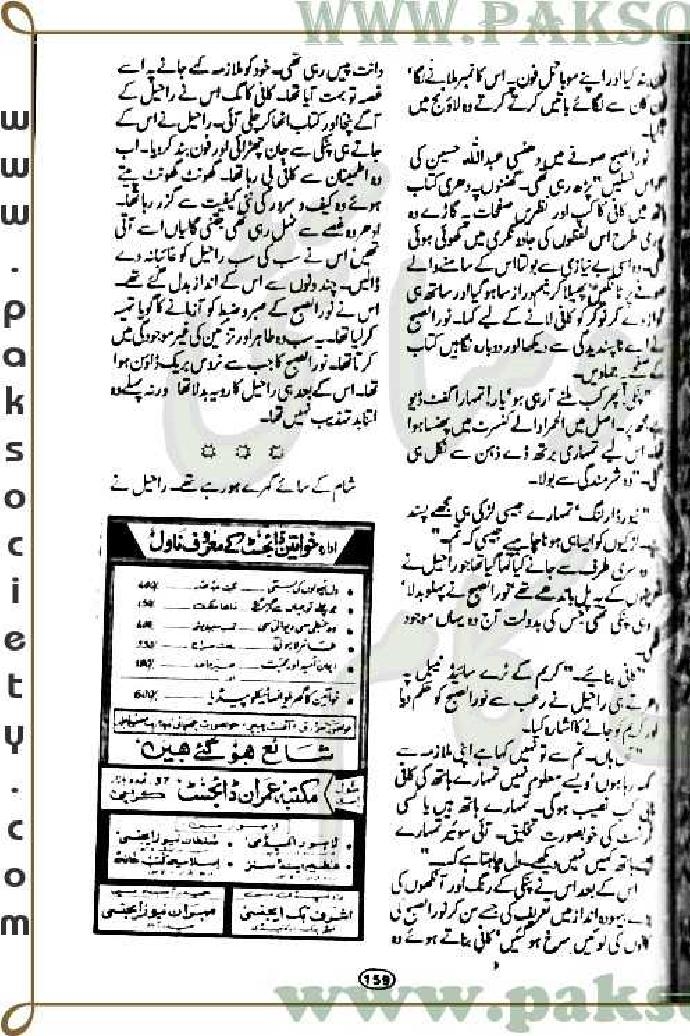 WWW.PAKSO
www.paksociety.com
نہ کیا اور اپنے موبائل فون پہ اس کا نمبر ملانے لگا
کان سے لگائے باتیں کرتے کرتے وہ لاؤنج میں
نور الصبح صوفے میں دھنسی عبداللہ حسین کی
اداس نسلیں" پڑھ رہی تھی۔ گھٹنوں پہ دھری کتاب
میں کافی کا کپ اور نظریں صفحات پہ گاڑے وہ
طرح اس لفظوں کی جادو نگری میں کھوئی ہوئی
وہ اسی بے نیازی سے بولتا اس کے سامنے والے
صوفے پر ٹانگیں پھیلا کر نیم دراز سا ہو گیا اور ساتھ ہی
آواز دے کر نوکر کو کافی لانے کے لیے کہا۔ نور الصبح
نے اسے ناپسندیدگی سے دیکھا اور دوبارہ نگاہیں کتاب
کے صفحے پہ جما دیں۔
"پنکی! پھر کب ملنے آ رہی ہو' یار! تمہارا گفٹ ڈیو
ہے مجھ پر۔ اصل میں الحمرا والے کنسرٹ میں پھنسا ہوا
تھا۔ اس لیے تمہاری برتھ ڈے ذہن سے نکل ہی
گئی۔" وہ شرمندگی سے بولا۔
"نیور ڈارلنگ' تمہارے جیسی لڑکی ہی مجھے پسند
ہے۔ لڑکیوں کو ایسا ہی ہونا چاہیے جیسی کہ تم۔"
دوسری طرف سے جانے کیا کہا گیا تھا جو راحیل نے
کے پل باندھے تھے' نور الصبح نے پہلو بدلا'
پنکی تھی جس کی بدولت آج وہ یہاں موجود
تھی۔
"کافی بنائیے۔" کریم کے ٹرے سائیڈ ٹیبل پہ
دھرتے ہی راحیل نے رعب سے نور الصبح کو حکم دیا
اور کریم کو جانے کا اشارہ کیا۔
"ہاں۔ تم سے تو نہیں کہا ہے اپنی ملازمہ سے
کہہ رہا ہوں' ویسے معلوم نہیں تمہارے ہاتھ کی کافی
کب نصیب ہوگی۔ تمہارے ہاتھ میں یا کسی
کی خوبصورت تخلیق۔ آئی سوئیر تمہارے
ہاتھ کہیں نہیں دیکھے دل چاہتا ہے کہ۔"
اس کے بعد اس نے پنکی کے رنگ اور آنکھوں کی
بے ہودہ انداز میں تعریف کی جسے سن کر نور الصبح کی
کانوں کی لوئیں سرخ ہو گئیں' کافی بناتے ہوئے وہ
دانت پیس رہی تھی۔ خود کو ملازمہ کہے جانے پہ اسے
غصہ تو بہت آیا تھا۔ کافی کا مگ اس نے راحیل کے
آگے پٹخا اور کتاب اٹھا کر چلی آئی۔ راحیل نے اس کے
جاتے ہی پنکی سے جان چھڑائی اور فون بند کر دیا۔ اب
وہ اطمینان سے کافی پی رہا تھا۔ گھونٹ گھونٹ پیتے
ہوئے وہ کیف و سرور کی نئی کیفیت سے گزر رہا تھا۔
ادھر وہ غصے سے ٹہل رہی تھی جتنی گالیاں اسے آتی
تھیں اس نے سب کی سب راحیل کو غائبانہ دے
ڈالیں۔ چند دنوں سے اس کے انداز بدل گئے تھے۔
اس نے نور الصبح کے صبر و ضبط کو آزمانے کا گویا تہیہ
کر لیا تھا۔ یہ سب وہ طاہر اور تزئین کی غیر موجودگی میں
کرتا تھا۔ نور الصبح کا جب سے نروس بریک ڈاؤن ہوا
تھا۔ اس کے بعد ہی راحیل کا رویہ بدلا تھا ورنہ پہلے وہ
اتنا بد تہذیب نہیں تھا۔
شام کے سائے گہرے ہو رہے تھے۔ راحیل نے
ادارہ خواتین ڈائجسٹ کے معروف ناول
خواتین کا گھریلو انسائیکلوپیڈیا 600/-
شائع ہو گئے ہیں
مکتبہ عمران ڈائجسٹ 37 اردو بازار کراچی
لاہور اکیڈمی
سلطان نیوز ایجنسی
اسلامیہ کتب خانہ
اشرف بک ایجنسی
مہران نیوز ایجنسی
159
www.pakso